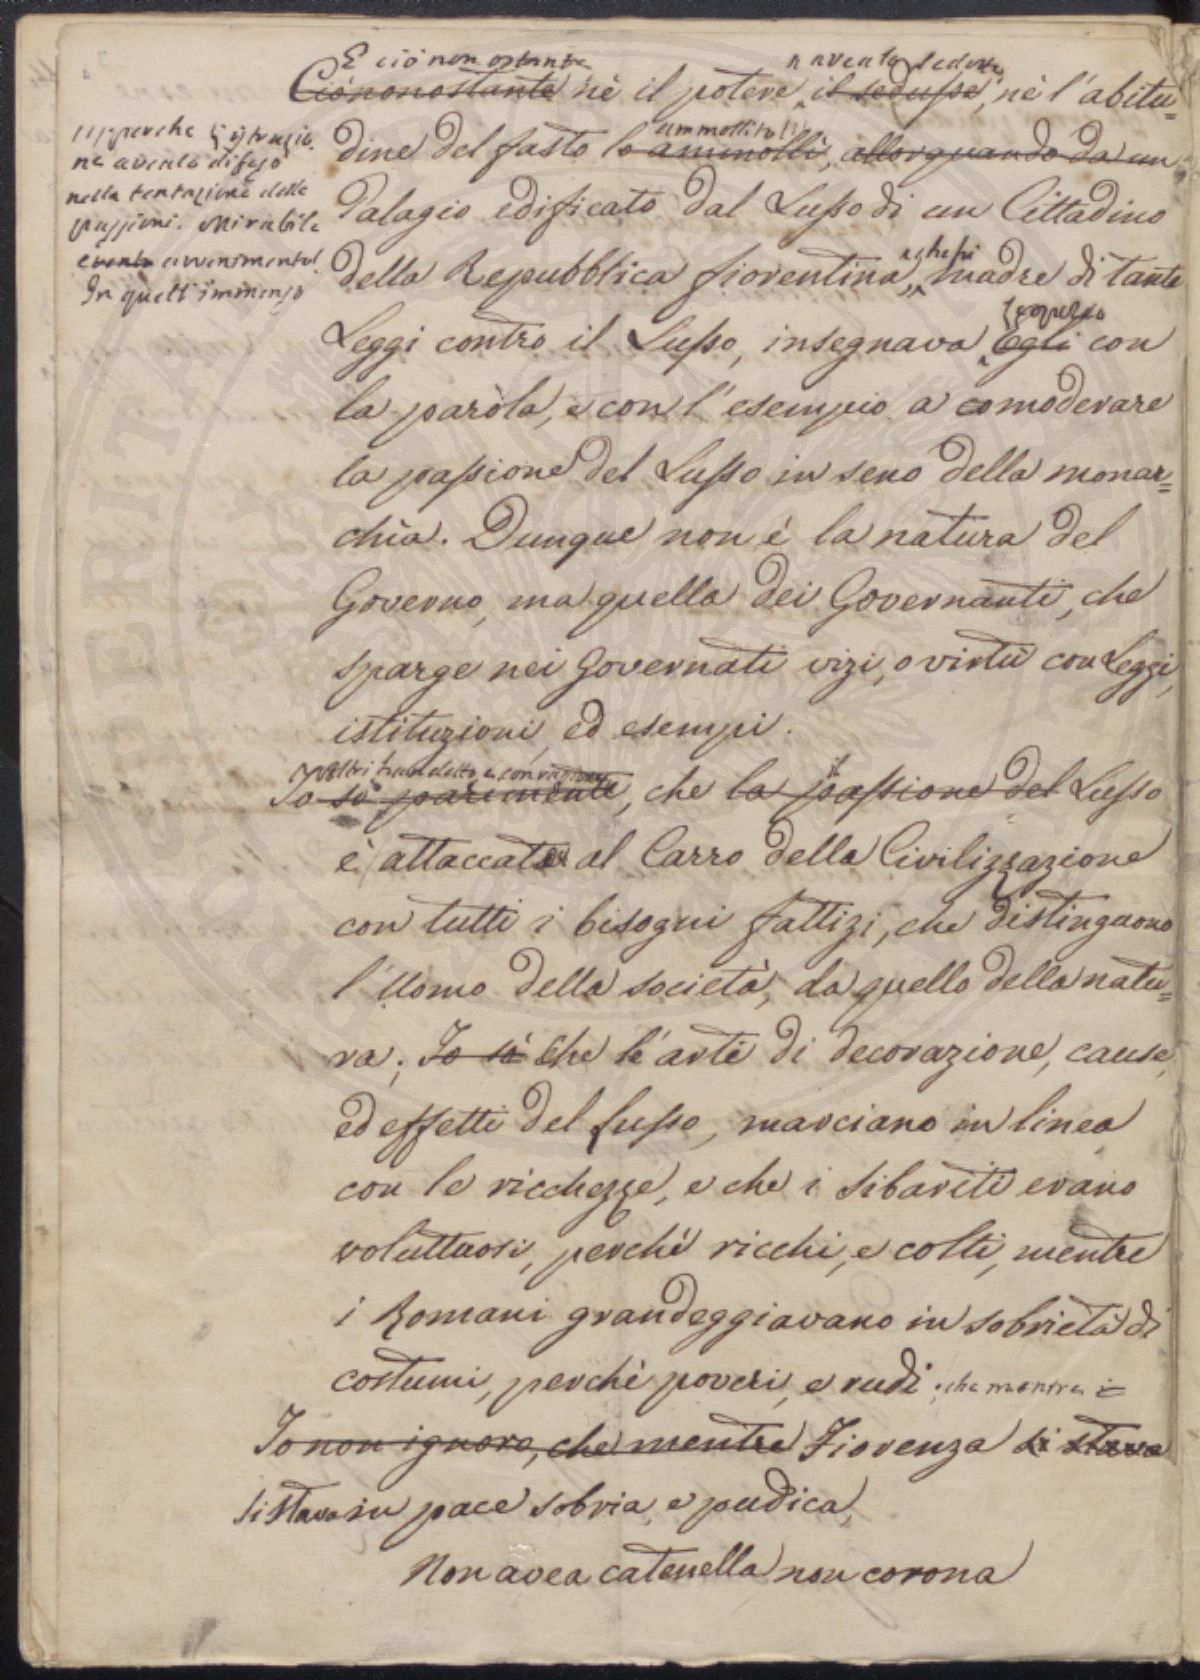 E ciò non ostante
Ciò nonostante nè il potere, il sedusse, nè l'abitu=
ammollito
dine del fasto lo ammollì, allorquando da un
Palagio edificato dal Lusso di un Cittadino
della Repubblica fiorentina, madre di tante
Leggi contro il Lusso, insegnava Egli con
la paròla, e con l'esempio a comoderare
la passione del Lusso in seno della monar=
chìa. Dunque non è la natura del
Governo, ma quella dei Governanti, che
sparge nei Governati vizi, o virtù con Leggi,
istituzioni, ed esempi.
Io so parimente, che la passione del Lusso
è attaccata al Carro della Civilizzazione
con tutti i bisogni fattizi, che distinguono
l'Uomo della società, da quello della natu=
ra; Io so che le arti di decorazione, cause,
ed effetti del Lusso, marciano in linea
con le ricchezze, e che i Sibariti erano
voluttuosi, perchè ricchi, e colti, mentre
i Romani grandeggiavano in sobrietà di
costumi, perchè poveri, e rudi; che mentre
Io non ignoro, che mentre Fiorenza si stava
si stava in pace sobria, e pudica,
Non avea catenella non corona
perche
ne aveala difeso
nella tentazione delle
passioni. Mirabile
evento avvenimento!
In quell'immenso